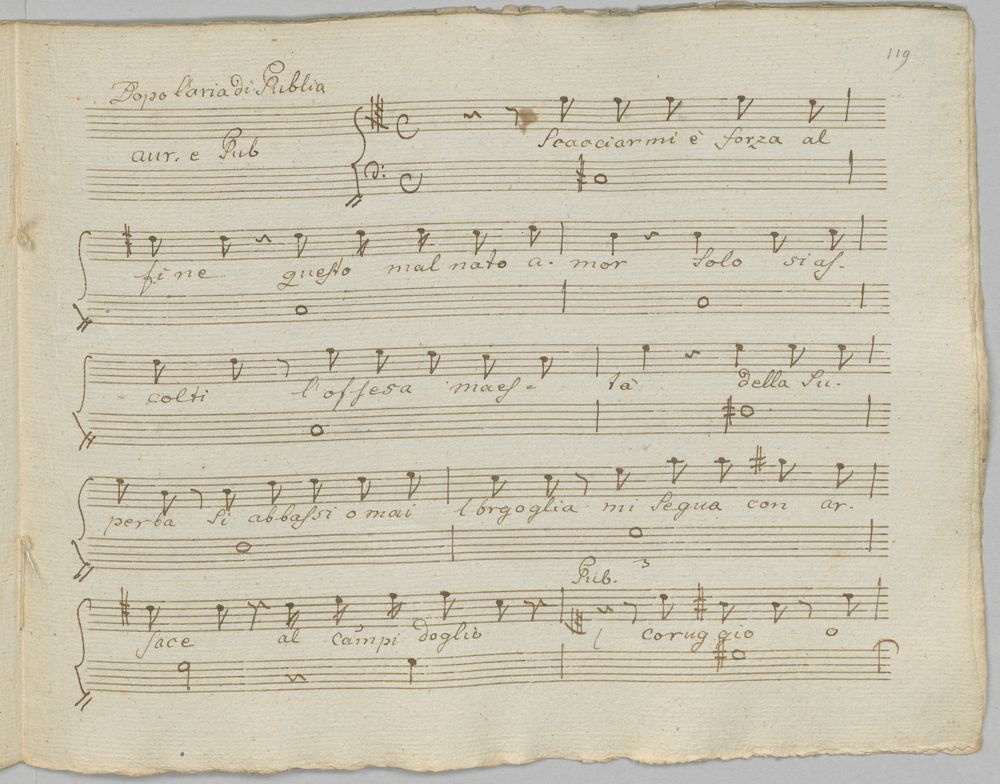 119
Dopo l'aria di Publia
aur. e Pub
Scacciarmi è forza al
fine questo mal nato a- mor solo si as-
- colti l'offesa maes- tà della Su-
perba si abbassi o mai l'orgoglia mi segua con ar-
Pub. 3
sace al campi doglio coruggio o